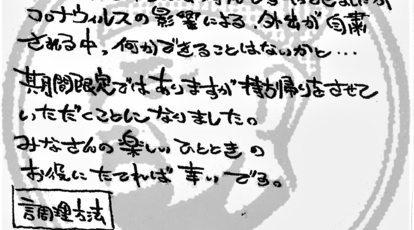 コロナウィルスの影響による外出が自粛
される中、何かできることはないかと…
期間限定ではありますが持ち帰りをさせて
いただくことになりました。
みなさんの楽しいひとときの
お役にたてれば幸いです。
調理方法